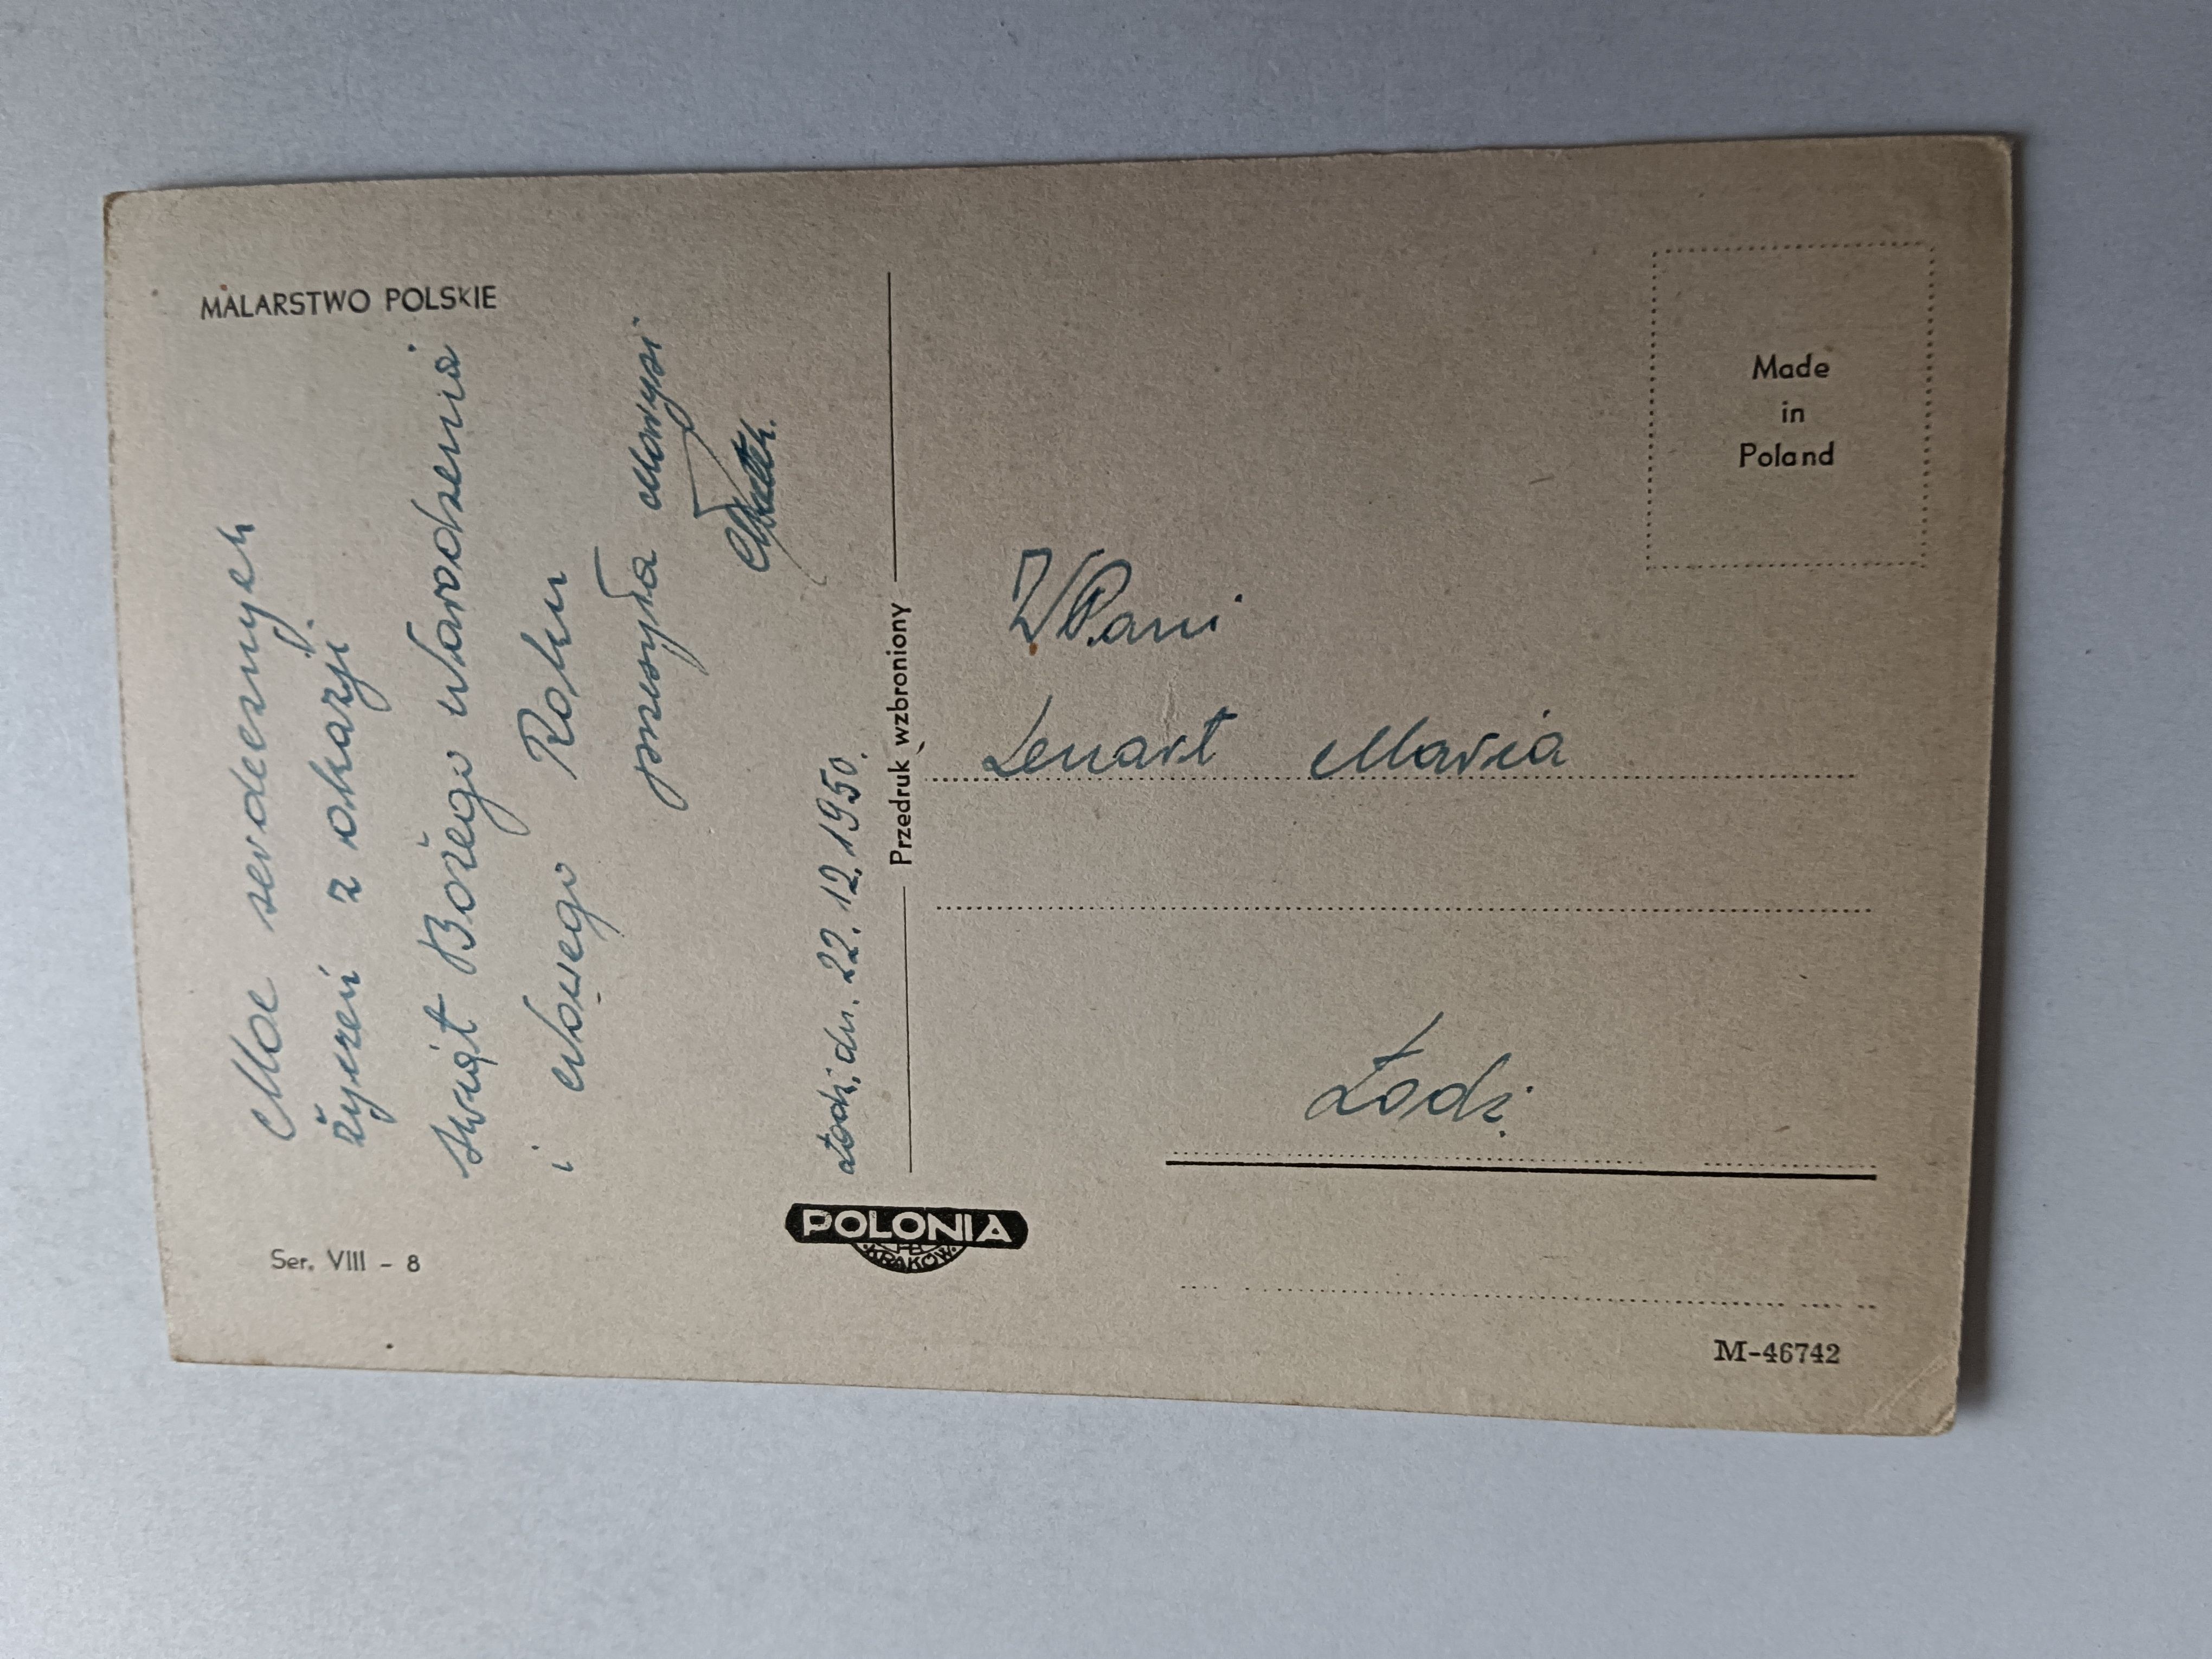 MALARSTWO POLSKIE
Moc serdecznych
życzeń z okazji
Świąt Bożego Narodzenia
i Nowego Roku
przesyła
Łódź, dn. 22. 12. 1950.
Ser. VIII - 8
Przedruk wzbroniony
POLONIA
KRAKÓW
Made
in
Poland
WPani
Lenart Maria
Łódź.
M-46742